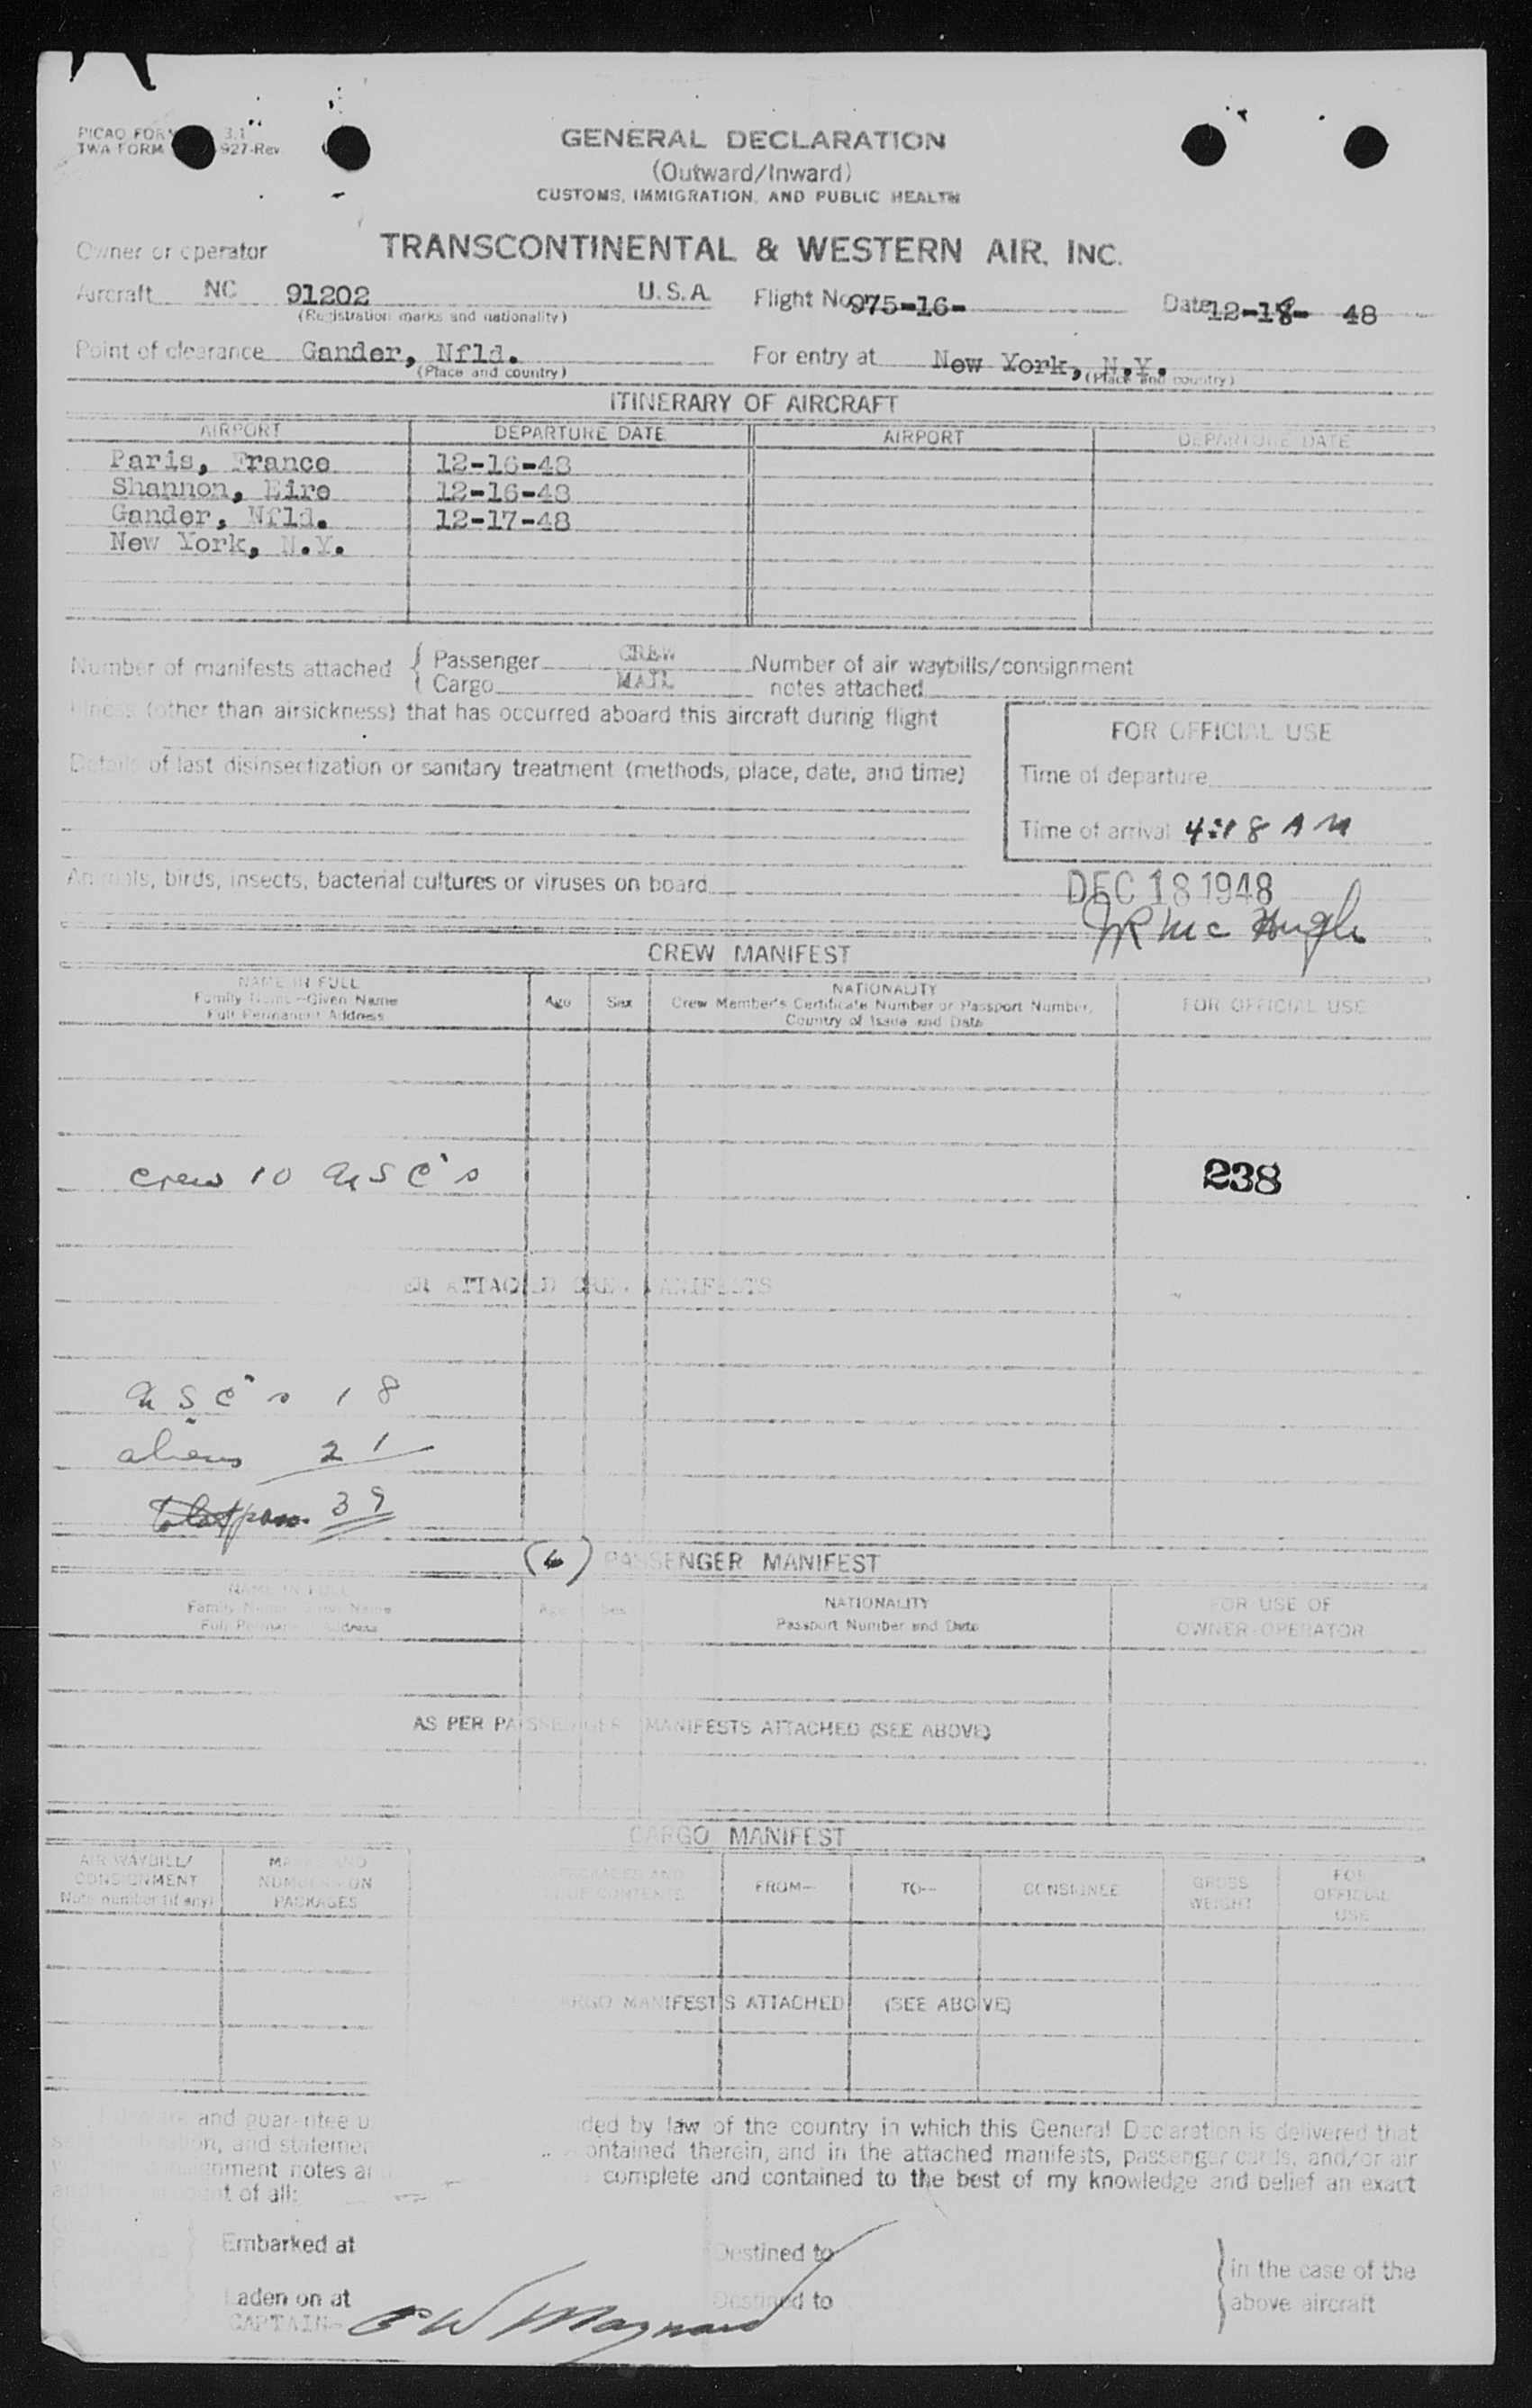 PICAO FORM 3.1
TWA FORM 927-Rev
GENERAL DECLARATION
(Outward/Inward)
CUSTOMS, IMMIGRATION, AND PUBLIC HEALTH
Owner or operator TRANSCONTINENTAL & WESTERN AIR, INC.
Aircraft NC 91202 U.S.A. Flight No. 975-16- Date 12-18- 48
(Registration marks and nationality)
Point of clearance Gander, Nfld. For entry at New York, N.Y.
(Place and country) (Place and country)
ITINERARY OF AIRCRAFT
AIRPORT DEPARTURE DATE AIRPORT DEPARTURE DATE
Paris, France 12-16-48
Shannon, Eire 12-16-48
Gander, Nfld. 12-17-48
New York, N.Y.
Number of manifests attached { Passenger CREW Number of air waybills/consignment
Cargo MAIL notes attached
Illness (other than airsickness) that has occurred aboard this aircraft during flight
FOR OFFICIAL USE
Details of last disinsectization or sanitary treatment (methods, place, date, and time)
Time of departure
Time of arrival 4:18 AM
Animals, birds, insects, bacterial cultures or viruses on board
DEC 18 1948
JR McHugh
CREW MANIFEST
NAME IN FULL
Family Name—Given Name
Full Permanent Address
Age Sex
NATIONALITY
Crew Member's Certificate Number or Passport Number,
Country of Issue and Date
FOR OFFICIAL USE
Crew 10 USC's
238
ER ATTACHED CREW MANIFESTS
USC's 18
aliens 21
Total pass. 39
(6) PASSENGER MANIFEST
NAME IN FULL
Family Name Given Name
Full Permanent Address
Age Sex
NATIONALITY
Passport Number and Date
FOR USE OF
OWNER-OPERATOR
AS PER PASSENGER MANIFESTS ATTACHED (SEE ABOVE)
CARGO MANIFEST
AIR WAYBILL/
CONSIGNMENT
Note number (if any)
MARKS AND
NUMBERS ON
PACKAGES
FROM—
TO—
CONSIGNEE
GROSS
WEIGHT
FOR
OFFICIAL
USE
CARGO MANIFESTS ATTACHED (SEE ABOVE)
and guarantee u ded by law of the country in which this General Declaration is delivered that
and statemen contained therein, and in the attached manifests, passenger cards, and/or air
consignment notes a complete and contained to the best of my knowledge and belief an exact
of all:
Embarked at Destined to
Laden on at Destined to
} in the case of the
above aircraft
CAPTAIN- C W Maynard